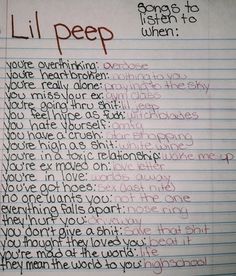 Lil peep
songs to
listen to
when:
you're overthinking: overdose
you're heartbroken: nothing to you
you're really alone: praying to the sky
you miss your ex: gym class
you're going thru shit: lil jeep
you feel hype as fuck: witchblades
you hate yourself: omfg
you have a crush: star shopping
you're high as shit: white wine
you're in a toxic relationship: wake me up
you're ex moved on: love letter
you're in love: worlds away
you've got hoes: sex (last nite)
no one wants you: not the one
everything falls apart: nose ring
they hurt you:
you don't give a shit: save that shit
you thought they loved you: beat it
you're mad at the world: life
they mean the world to you: highschool